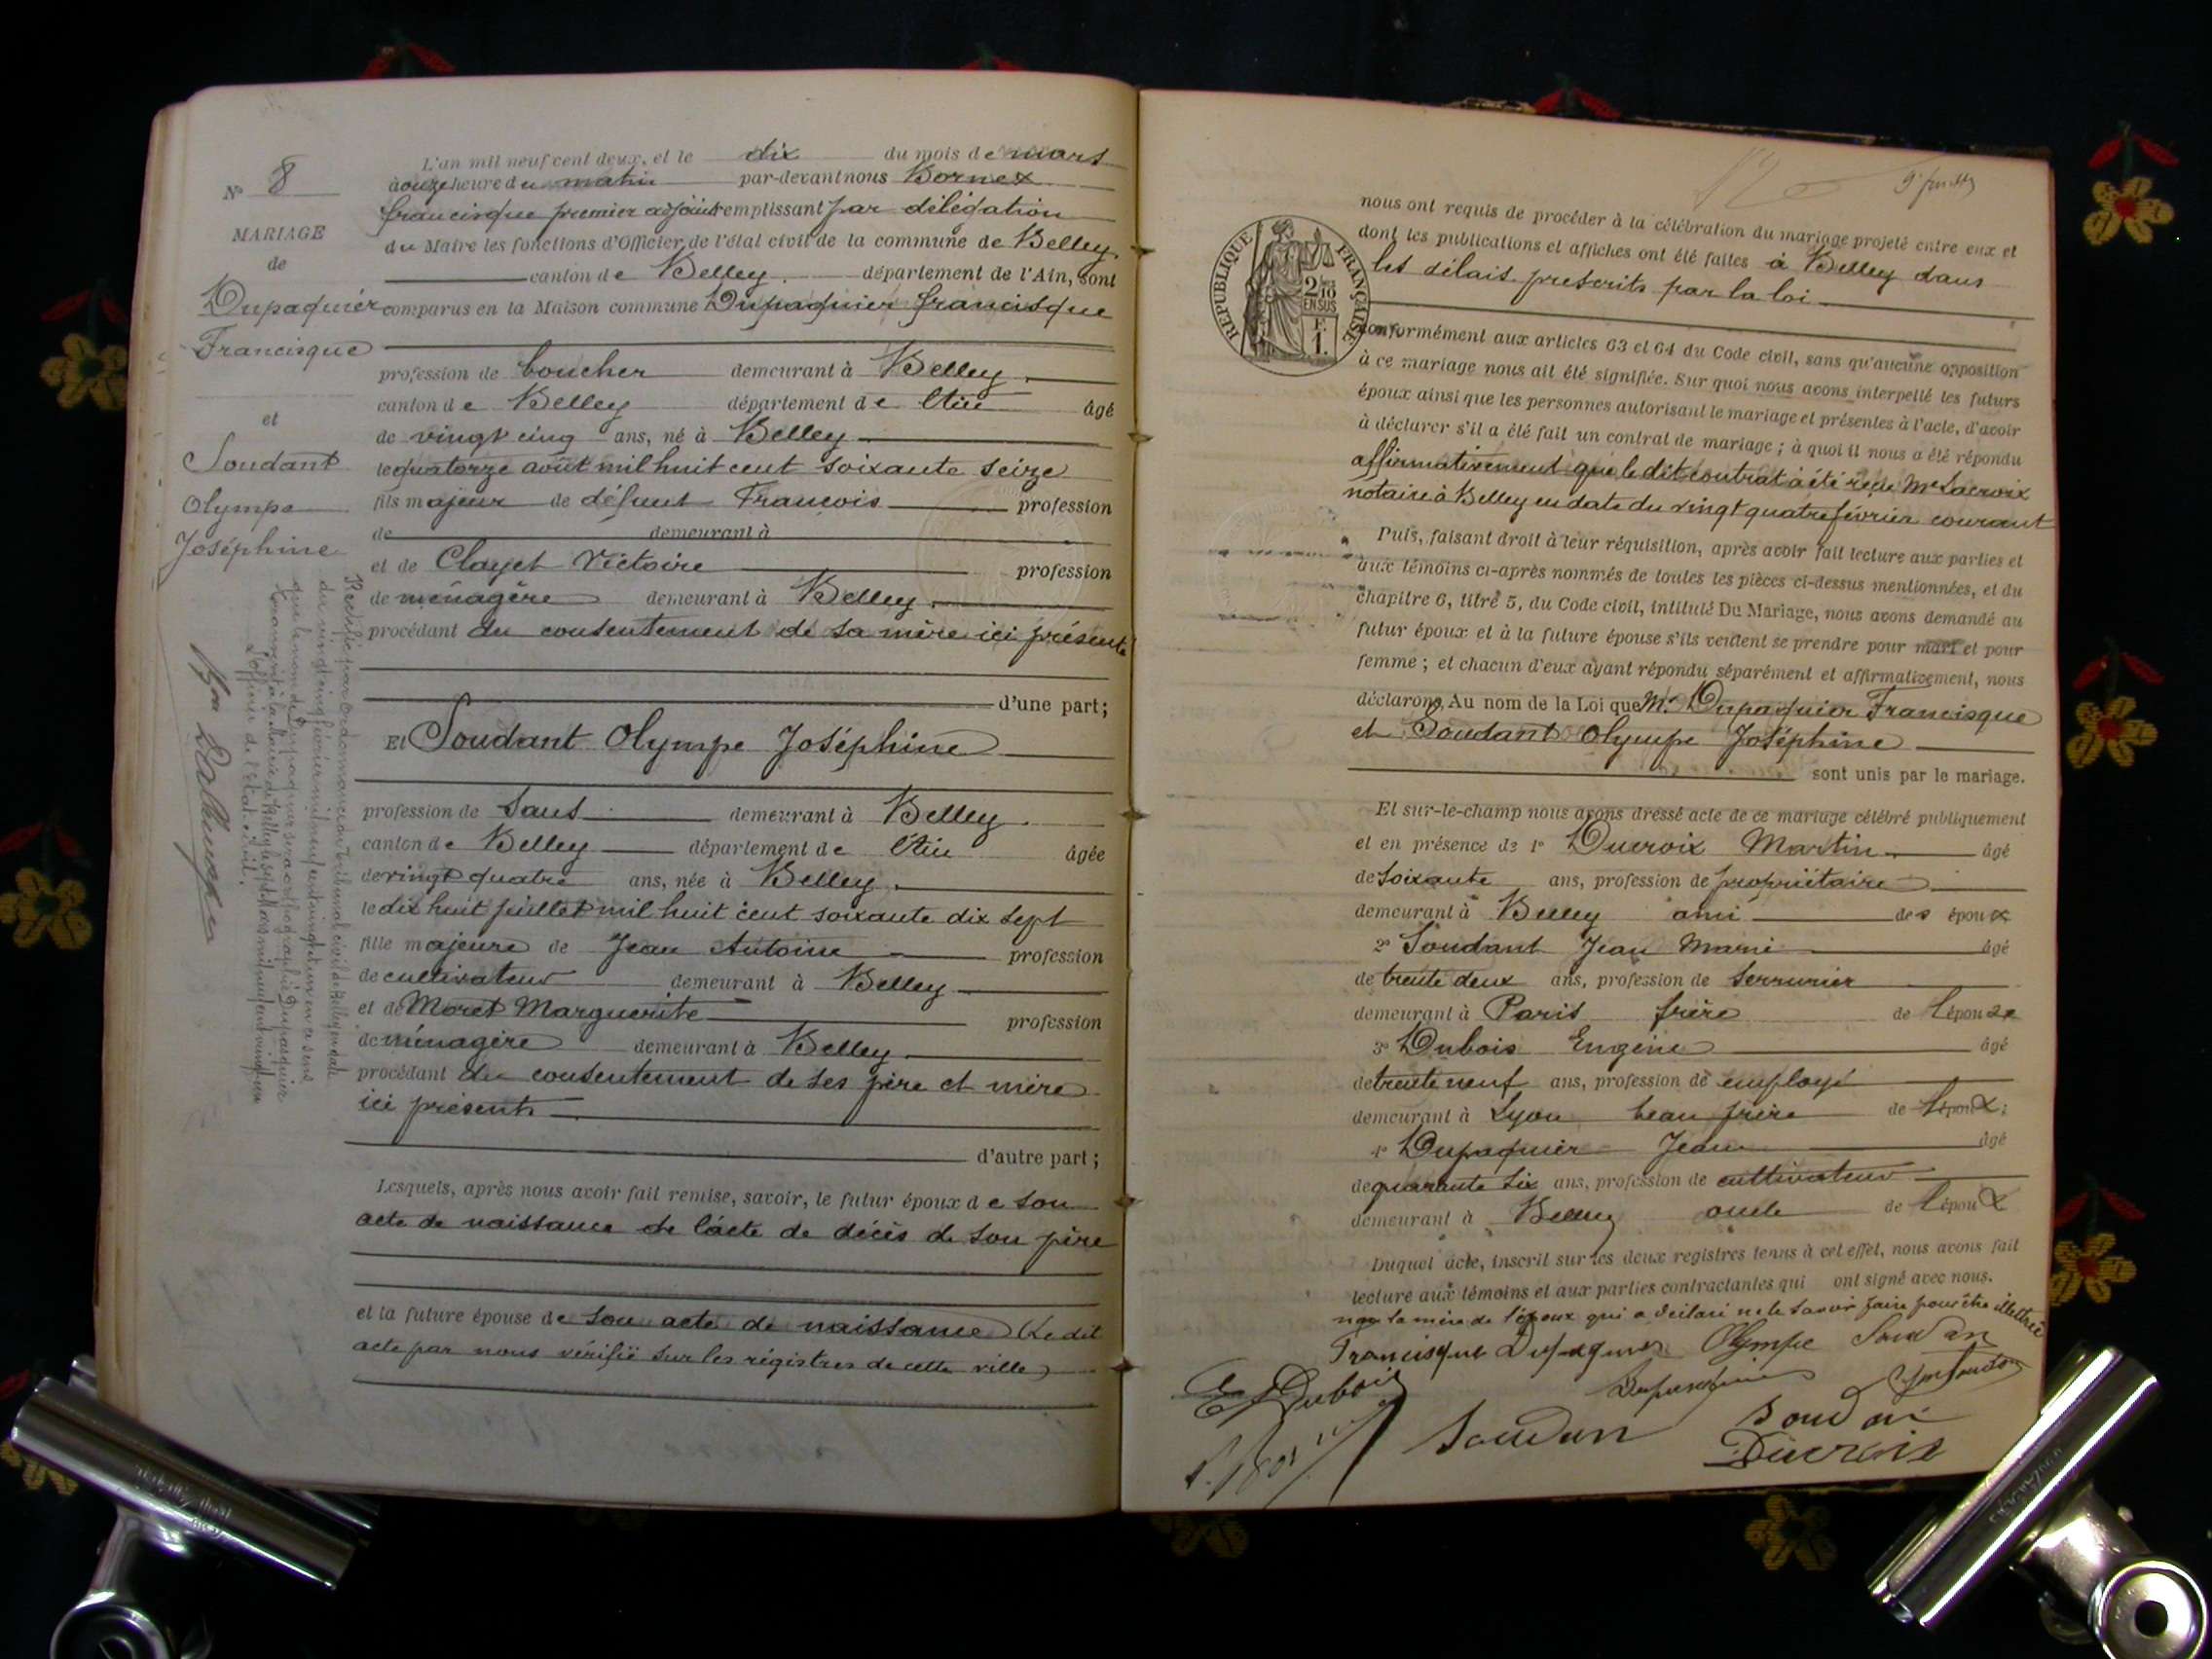 N° 8
MARIAGE
de
Dupaquier
Francisque
et
Soudant
Olympe
Joséphine
Rectifié par ordonnance du tribunal civil de Belley en date
du vingt cinq février mil neuf cent vingt et un en ce sens
que le nom de Dupaquier sera orthographié Dupasquier
L'officier de l'état civil.
L'an mil neuf cent deux, et le dix du mois de mars
à onze heure du matin par-devant nous Bornex
francisque premier adjoint remplissant par délégation
du Maire les fonctions d'Officier de l'état civil de la commune de Belley
canton de Belley département de l'Ain, sont
comparus en la Maison commune Dupaquier francisque
profession de boucher demeurant à Belley
canton de Belley département de l'Ain âgé
de vingt cinq ans, né à Belley
le quatorze août mil huit cent soixante seize
fils majeur de défunt Francois profession
de demeurant à
et de Clayet Victoire profession
de ménagère demeurant à Belley
procédant du consentement de sa mère ici présente
d'une part;
Et Soudant Olympe Joséphine
profession de Sans demeurant à Belley
canton de Belley département de l'Ain âgée
de vingt quatre ans, née à Belley
le dix huit juillet mil huit cent soixante dix sept
fille majeure de Jean Antoine profession
de cultivateur demeurant à Belley
et de Moret Marguerite profession
de ménagère demeurant à Belley
procédant du consentement de ses père et mère
ici présents
d'autre part;
Lesquels, après nous avoir fait remise, savoir, le futur époux de son
acte de naissance de l'acte de décès de son père
et la future épouse de son acte de naissance (Le dit
acte par nous vérifié sur les régistres de cette ville)
RÉPUBLIQUE FRANÇAISE
2/10
EN SUS
F.
1.
nous ont requis de procéder à la célébration du mariage projeté entre eux et
dont les publications et affiches ont été faites à Belley dans
les délais prescrits par la loi
conformément aux articles 63 et 64 du Code civil, sans qu'aucune opposition
à ce mariage nous ait été signifiée. Sur quoi nous avons interpellé les futurs
époux ainsi que les personnes autorisant le mariage et présentes à l'acte, d'avoir
à déclarer s'il a été fait un contrat de mariage; à quoi il nous a été répondu
affirmativement que le dit contrat à été reçu Me Lacroix
notaire à Belley en date du vingt quatre février courant
Puis, faisant droit à leur réquisition, après avoir fait lecture aux parties et
aux témoins ci-après nommés de toutes les pièces ci-dessus mentionnées, et du
chapitre 6, titre 5, du Code civil, intitulé Du Mariage, nous avons demandé au
futur époux et à la future épouse s'ils veulent se prendre pour mari et pour
femme; et chacun d'eux ayant répondu séparément et affirmativement, nous
déclarons, Au nom de la Loi que Mr Dupaquier Francisque
et Soudant Olympe Joséphine
sont unis par le mariage.
Et sur-le-champ nous avons dressé acte de ce mariage célébré publiquement
et en présence de 1° Ducroix Martin âgé
de soixante ans, profession de propriétaire
demeurant à Belley ami des époux
2° Soudant Jean Marie âgé
de trente deux ans, profession de serrurier
demeurant à Paris frère de l'épouse
3° Dubois Eugène âgé
de trente neuf ans, profession de employé
demeurant à Lyon beau frère de l'époux;
4° Dupaquier Jean âgé
de quarante six ans, profession de cultivateur
demeurant à Belley oncle de l'époux
Duquel acte, inscrit sur les deux registres tenus à cet effet, nous avons fait
lecture aux témoins et aux parties contractantes qui ont signé avec nous.
non la mère de l'époux qui a déclaré ne le savoir faire pour être illettrée
Francisque Dupaquier Olympe Soudan
E Dubois
Soudan Soudan
Ducroix